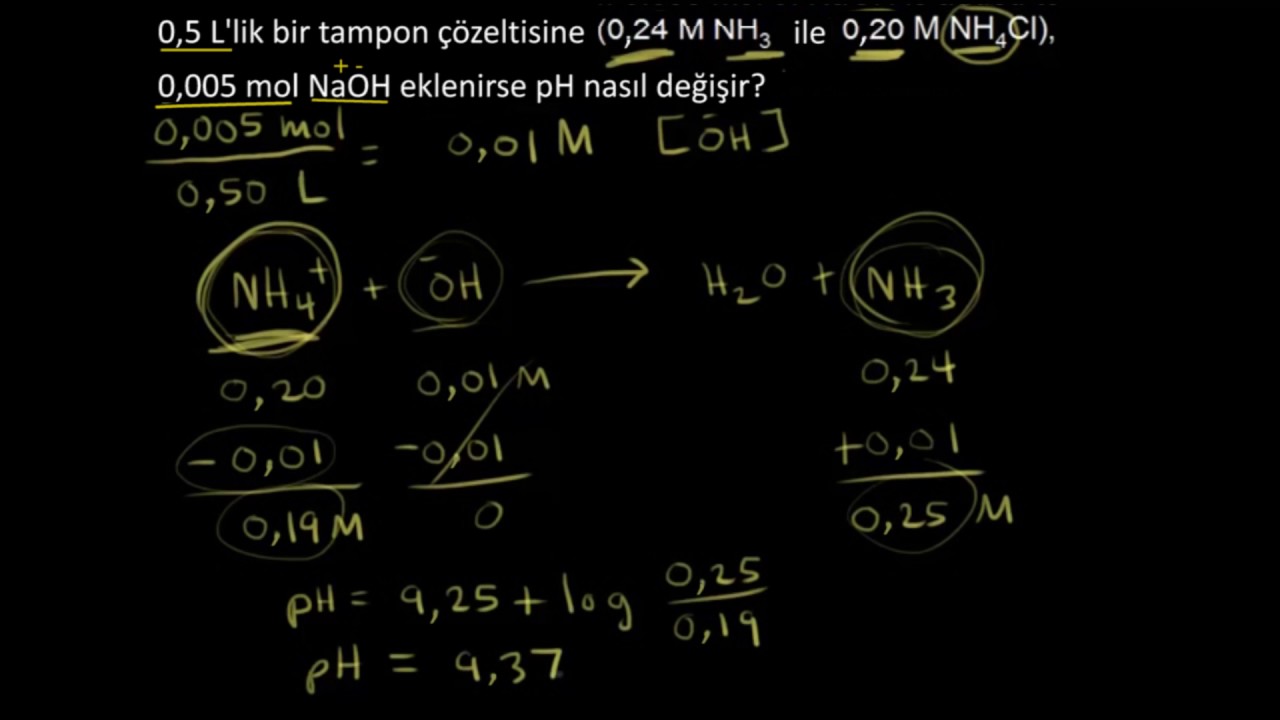 0,5 L'lik bir tampon çözeltisine (0,24 M NH₃ ile 0,20 M NH₄Cl),
+ -
0,005 mol NaOH eklenirse pH nasıl değişir?
0,005 mol / 0,50 L = 0,01 M [OH⁻]
NH₄⁺ + ⁻OH → H₂O + NH₃
0,20 0,01 M 0,24
-0,01 -0,01 +0,01
0,19 M 0 0,25 M
pH = 9,25 + log 0,25 / 0,19
pH = 9,37